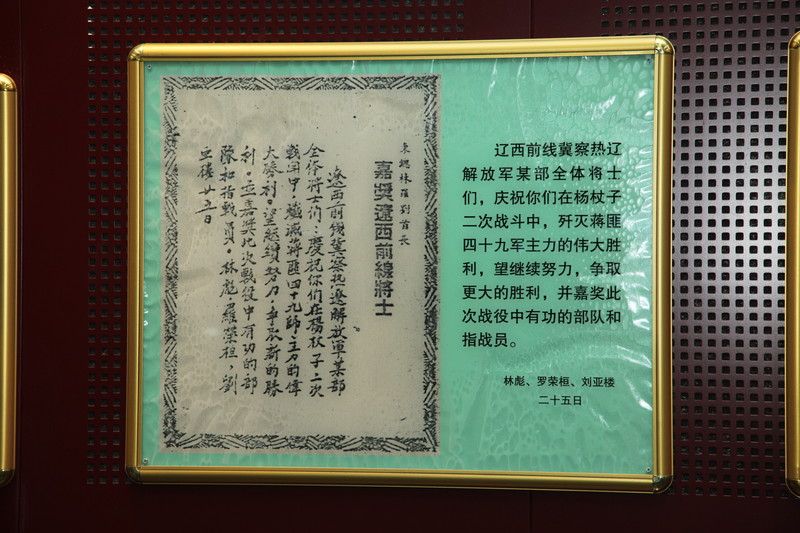 東總林羅劉首長
嘉獎遼西前線將士
遼西前线冀察热遼解放軍某部
全体將士们：慶祝你们在楊杖子二次
戰鬥中，殲滅蔣匪四十九師主力的偉
大勝利。望继續努力，争取新的勝
利。並嘉獎此次戰役中有功的部
隊和指戰員。林彪，羅榮桓，劉
亞樓廿五日
辽西前线冀察热辽
解放军某部全体将士
们，庆祝你们在杨杖子
二次战斗中，歼灭蒋匪
四十九军主力的伟大胜
利，望继续努力，争取
更大的胜利，并嘉奖此
次战役中有功的部队和
指战员。
林彪、罗荣桓、刘亚楼
二十五日